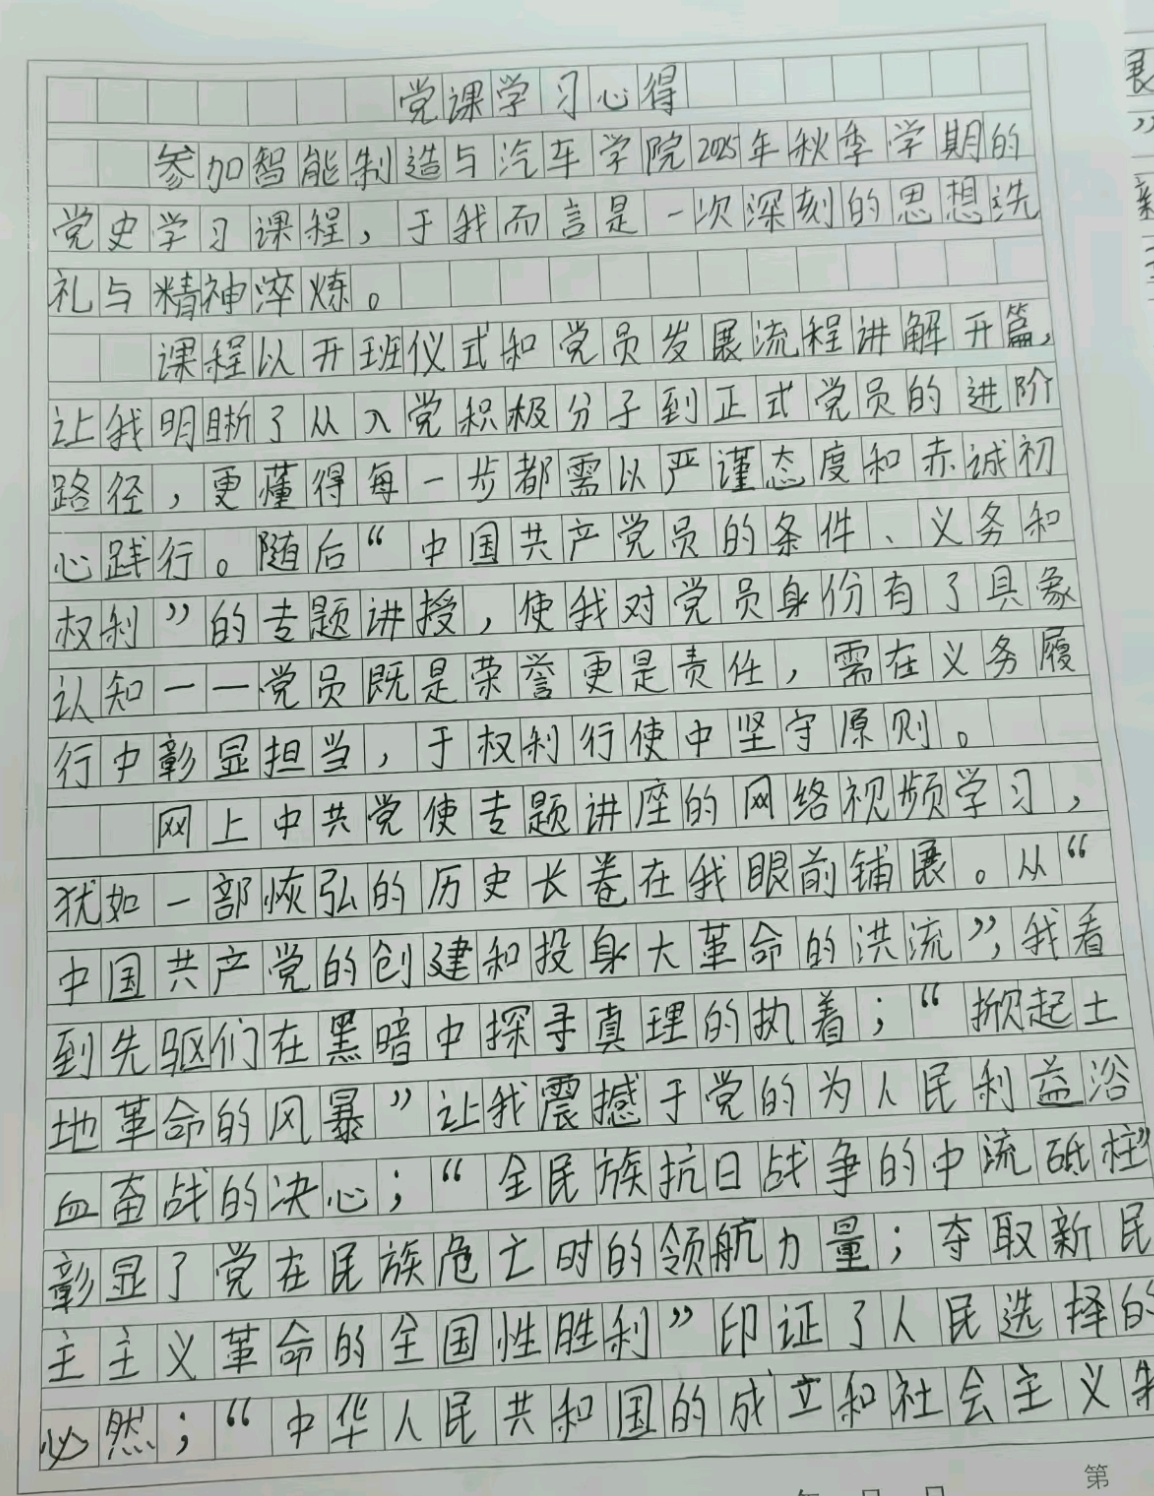 党课学习心得
参加智能制造与汽车学院2025年秋季学期的
党史学习课程，于我而言是一次深刻的思想洗
礼与精神淬炼。
课程以开班仪式和党员发展流程讲解开篇，
让我明晰了从入党积极分子到正式党员的进阶
路径，更懂得每一步都需以严谨态度和赤诚初
心践行。随后“中国共产党员的条件、义务和
权利”的专题讲授，使我对党员身份有了具象
认知——党员既是荣誉更是责任，需在义务履
行中彰显担当，于权利行使中坚守原则。
网上中共党使专题讲座的网络视频学习，
犹如一部恢弘的历史长卷在我眼前铺展。从“
中国共产党的创建和投身大革命的洪流”，我看
到先驱们在黑暗中探寻真理的执着；“掀起土
地革命的风暴”让我震撼于党的为人民利益浴
血奋战的决心；“全民族抗日战争的中流砥柱”
彰显了党在民族危亡时的领航力量；夺取新民
主主义革命的全国性胜利”印证了人民选择的
必然；“中华人民共和国的成立和社会主义制
第
年 月 日
展
”